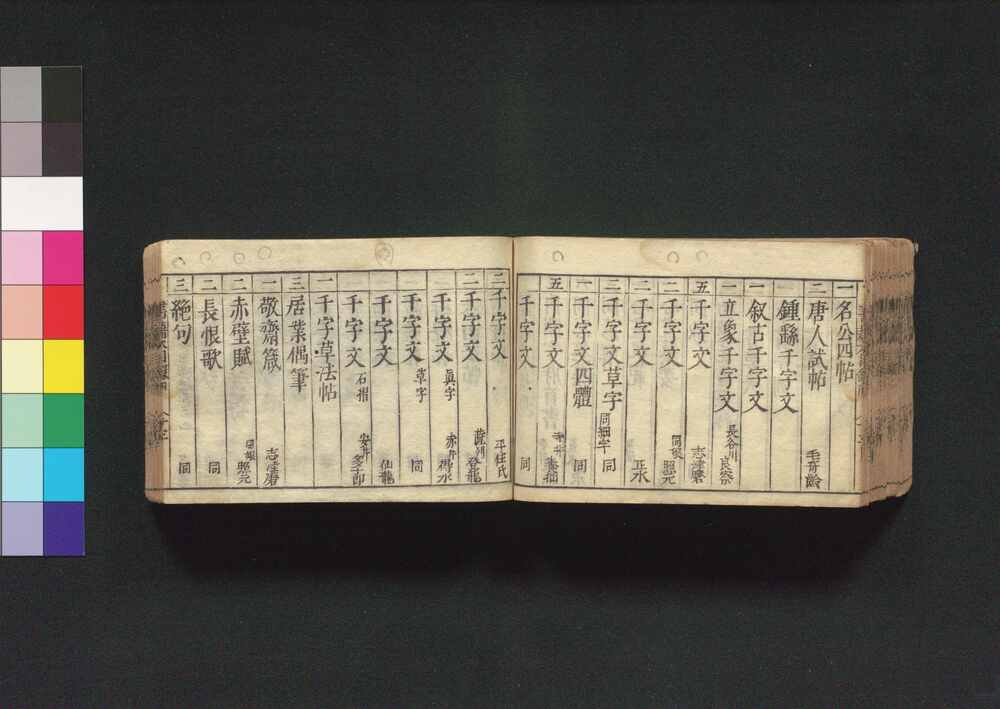 一 名公四帖
二 唐人試帖 毛奇齡
一 鍾繇千字文
一 叙古千字文
一 立象千字文 長谷川良察
五 千字文 志津磨
二 千字文 同頃 照元
二 千字文 正水
二 千字文草字 同細字 同
一 千字文四體 同
五 千字文 寺井養拙
千字文 同
三 千字文 平住氏
二 千字文 登龍
二 千字文 眞字
千字文 草字 同
千字文 仙龍
千字文 石摺
一 千字草法帖
三 居業偶筆
一 敬齋箴 志津磨
二 赤壁賦 照元
二 長恨歌 同
三 絶句 同